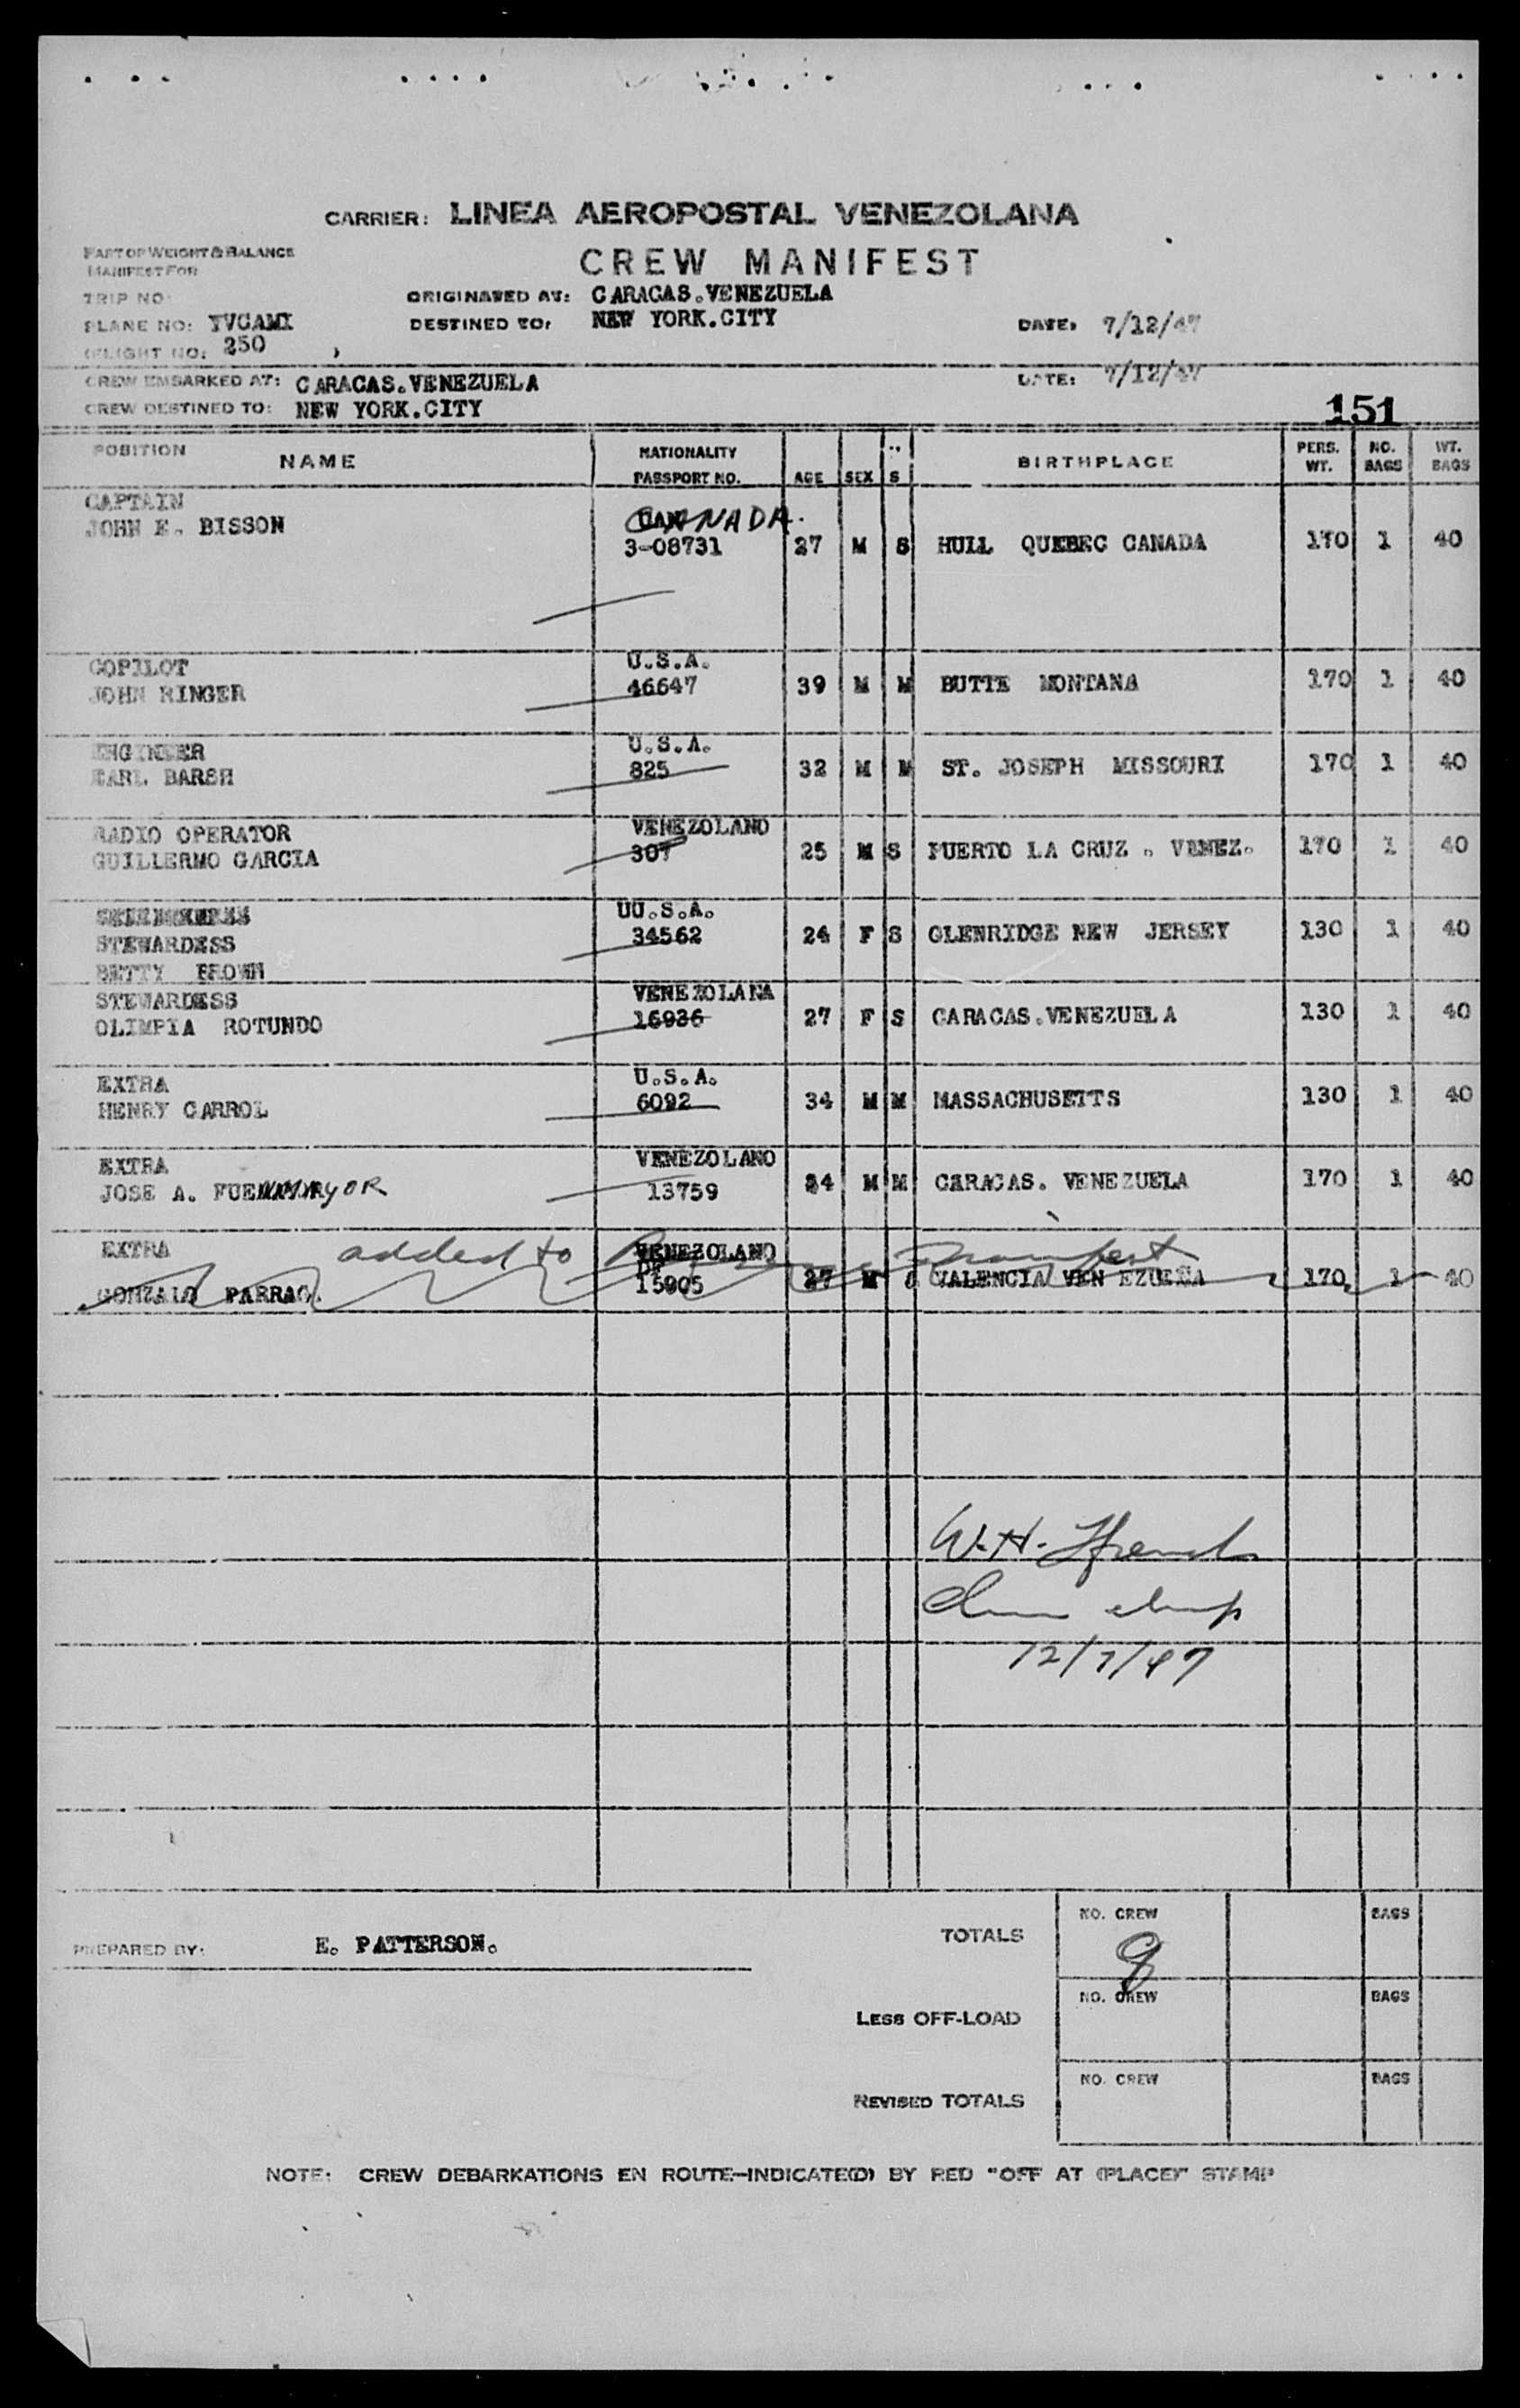 CARRIER: LINEA AEROPOSTAL VENEZOLANA
PART OF WEIGHT & BALANCE
MANIFEST FOR
CREW MANIFEST
TRIP NO:
ORIGINATED AT: CARACAS.VENEZUELA
PLANE NO: YVCAMI
DESTINED TO: NEW YORK.CITY
DATE: 7/12/47
FLIGHT NO: 250
CREW EMBARKED AT: CARACAS.VENEZUELA
DATE: 7/12/47
CREW DESTINED TO: NEW YORK.CITY
151
POSITION NAME NATIONALITY PASSPORT NO. AGE SEX S BIRTHPLACE PERS. WT. NO. BAGS WT. BAGS
CAPTAIN CANADA.
JOHN E. BISSON 3-08731 27 M S HULL QUEBEC CANADA 170 1 40
COPILOT U.S.A.
JOHN RINGER 46647 39 M M BUTTE MONTANA 170 1 40
ENGINEER U.S.A.
EARL BARSH 825 32 M M ST. JOSEPH MISSOURI 170 1 40
RADIO OPERATOR VENEZOLANO
GUILLERMO GARCIA 307 25 M S PUERTO LA CRUZ . VENEZ. 170 1 40
UU.S.A.
STEWARDESS 34562 24 F S GLENRIDGE NEW JERSEY 130 1 40
BETTY BROWN
STEWARDESS VENEZOLANA
OLIMPIA ROTUNDO 16936 27 F S CARACAS.VENEZUELA 130 1 40
EXTRA U.S.A.
HENRY CARROL 6092 34 M M MASSACHUSETTS 130 1 40
EXTRA VENEZOLANO
JOSE A. FUENMAYOR 13759 34 M M CARACAS. VENEZUELA 170 1 40
EXTRA added to VENEZOLANO manifest
GONZALO PARRAG. 15905 27 M VALENCIA VEN EZUELA 170 1 40
W.H. French
12/7/47
PREPARED BY: E. PATTERSON.
TOTALS NO. CREW 8 BAGS
LESS OFF-LOAD NO. CREW BAGS
REVISED TOTALS NO. CREW BAGS
NOTE: CREW DEBARKATIONS EN ROUTE-INDICATE(D) BY RED "OFF AT (PLACE)" STAMP